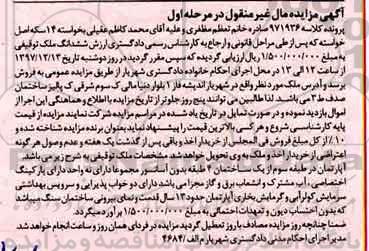 آگهی مزایده مال غیرمنقول در مرحله اول
پرونده کلاسه ۹۷۱۹۳۶ صادره خانم تعظم مظفری و علیه آقای محمد کاظم عقیلی بخواسته ۱۴ سکه اصل
خواسته که پس از طی مراحل قانونی و ارجاع به کارشناس رسمی دادگستری ارزش ششدانگ ملک توقیفی
به مبلغ ۱/۵۰۰/۰۰۰/۰۰۰ ریال ارزیابی گردیده که سپس مقرر گردید در روز دوشنبه تاریخ ۱۳۹۷/۱۲/۱۳
از ساعت ۱۲ الی ۱۳ در محل اجرای احکام خانواده دادگستری شهریار از طریق مزایده عمومی به فروش
برسد و آدرس ملک مورد نظر واقع در شهریار اندیشه فاز ۱ بلوار دنیا مالی ک سوم شرقی ک پالیز ساختمان
صدف ط ۳ می باشد. لذا طالبین می توانند پنج روز جلوتر از تاریخ مزایده با اطلاع و هماهنگی این اجرا از
اموال بازدید نموده و در صورت تمایل در تاریخ یاد شده در مراسم مزایده شرکت نمایند مزایده از قیمت
پایه کارشناسی شروع و هر کسی بالاترین قیمت را پیشنهاد نماید بعنوان برنده مزایده شناخته شده و
۱۰٪ از کل مبلغ فروش فی المجلس از خریدار اخذ و باقی پس از گذشت یک هفته و عدم وصول هر گونه
اعتراضی از خریدار اخذ و ملک به وی تحویل خواهد شد. مشخصات ملک توقیفی به شرح زیر می باشد:
آپارتمان در طبقه سوم از یک ساختمان ۴ طبقه بدون آسانسور مجموعا دارای نه واحد دارای پارکینگ
اختصاصی، آب مشترک و انشعاب برق و گاز مجزا می باشد دارای دو خواب پذیرایی و سرویس بهداشتی
سرمایش کولرآبی و گرمایش بخاری آپارتمان حدود ۱۳ سال قدمت و نمای بیرونی ساختمان سنگ میباشد
که بدون احتساب دیون و تعهدات احتمالی به مبلغ ۱/۵۰۰/۰۰۰/۰۰۰ برآورد میگردد.
ضمنا چنانچه روز مزایده مصادف با روز تعطیل گردید مزایده در فردای همان روز و ساعت انجام خواهد شد.
مدیر اجرای احکام مدنی دادگستری شهریار م الف/ ۴۶۸۴